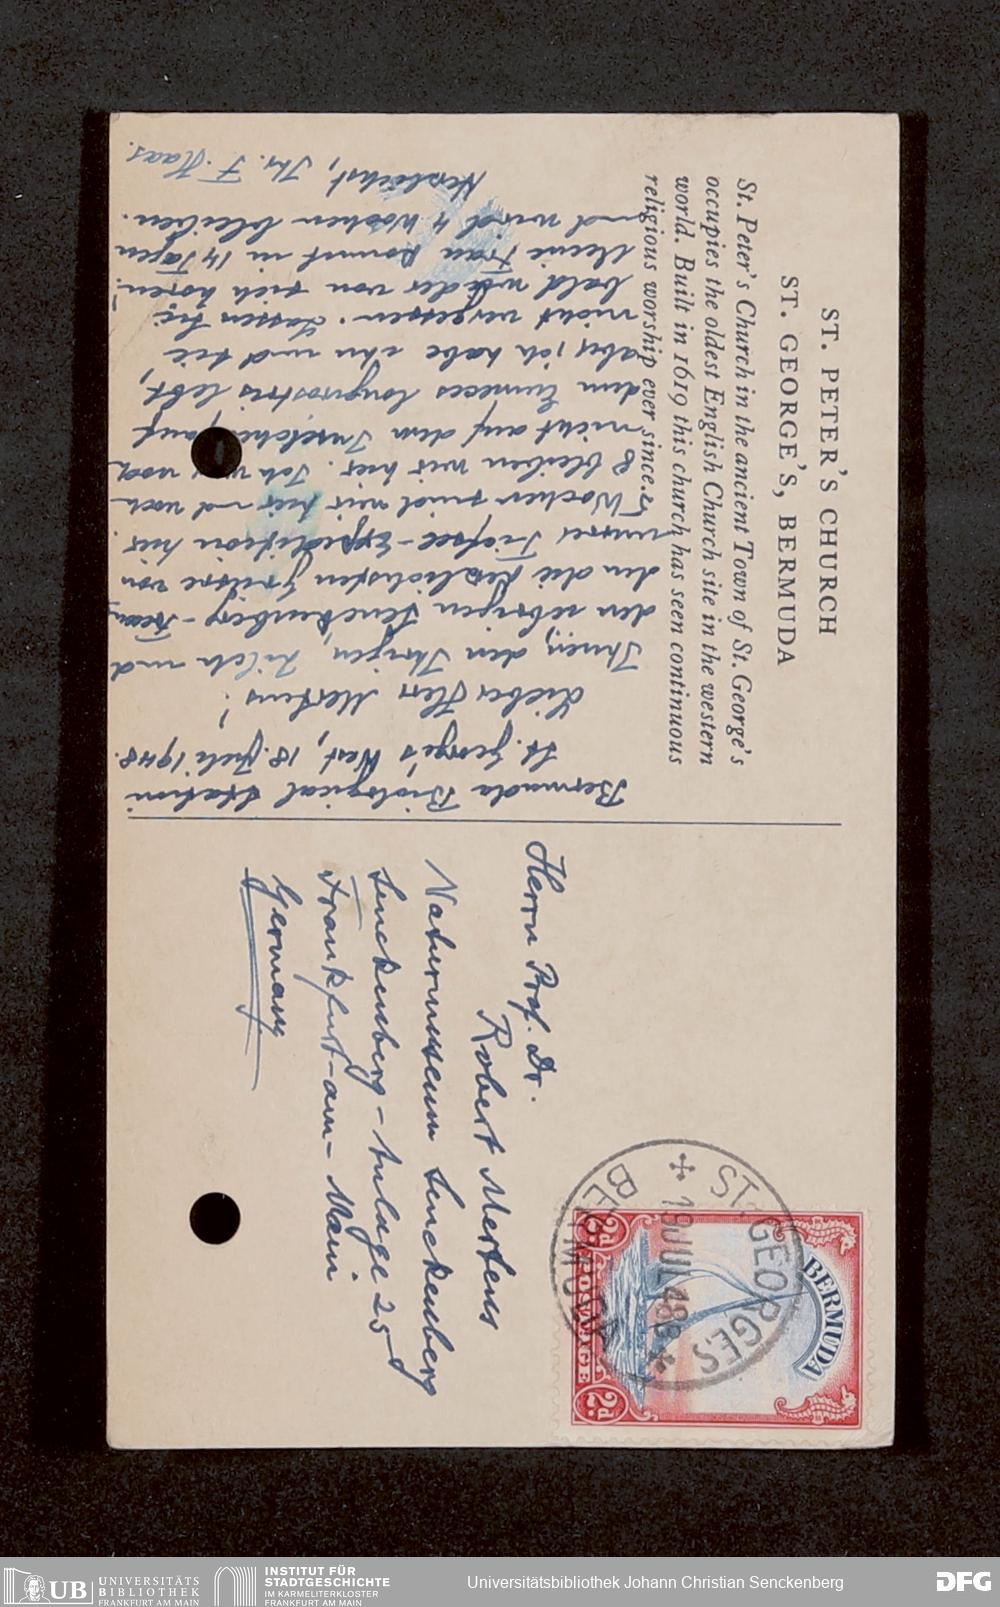 ST. PETER'S CHURCH
ST. GEORGE'S, BERMUDA
St. Peter's Church in the ancient Town of St. George's
occupies the oldest English Church site in the western
world. Built in 1619 this church has seen continuous
religious worship ever since.
Bermuda Biological Station
St. George's West, 18. Juli 1948.
Lieber Herr Mertens!
Ihnen, den Ihrigen, Zilch und
den uebrigen Senckenberg-
den die herzlichsten Grüsse von
unsrer Tiefsee-Expedition hier.
5 Wochen sind wir hier und noch
8 bleiben wir hier. Ich war noch
nicht auf dem Inselchen, auf
dem Eumeces longirostris lebt,
aber ich habe ihn und Sie
nicht vergessen. Lassen Sie
bald wieder von sich hören!
Meine Frau kommt in 14 Tagen
und wird 4 Wochen bleiben.
Herzlichst, Ihr. F. Haas.
Herrn Prof. Dr.
Robert Mertens
Naturmuseum Senckenberg
Senckenberg-Anlage 25
Frankfurt-am-Main
Germany
BERMUDA
POSTAGE
2d
2d
ST. GEORGES
19 JUL 48
BERMUDA
UB
UNIVERSITÄTS
BIBLIOTHEK
FRANKFURT AM MAIN
INSTITUT FÜR
STADTGESCHICHTE
IM KARMELITERKLOSTER
FRANKFURT AM MAIN
Universitätsbibliothek Johann Christian Senckenberg
DFG